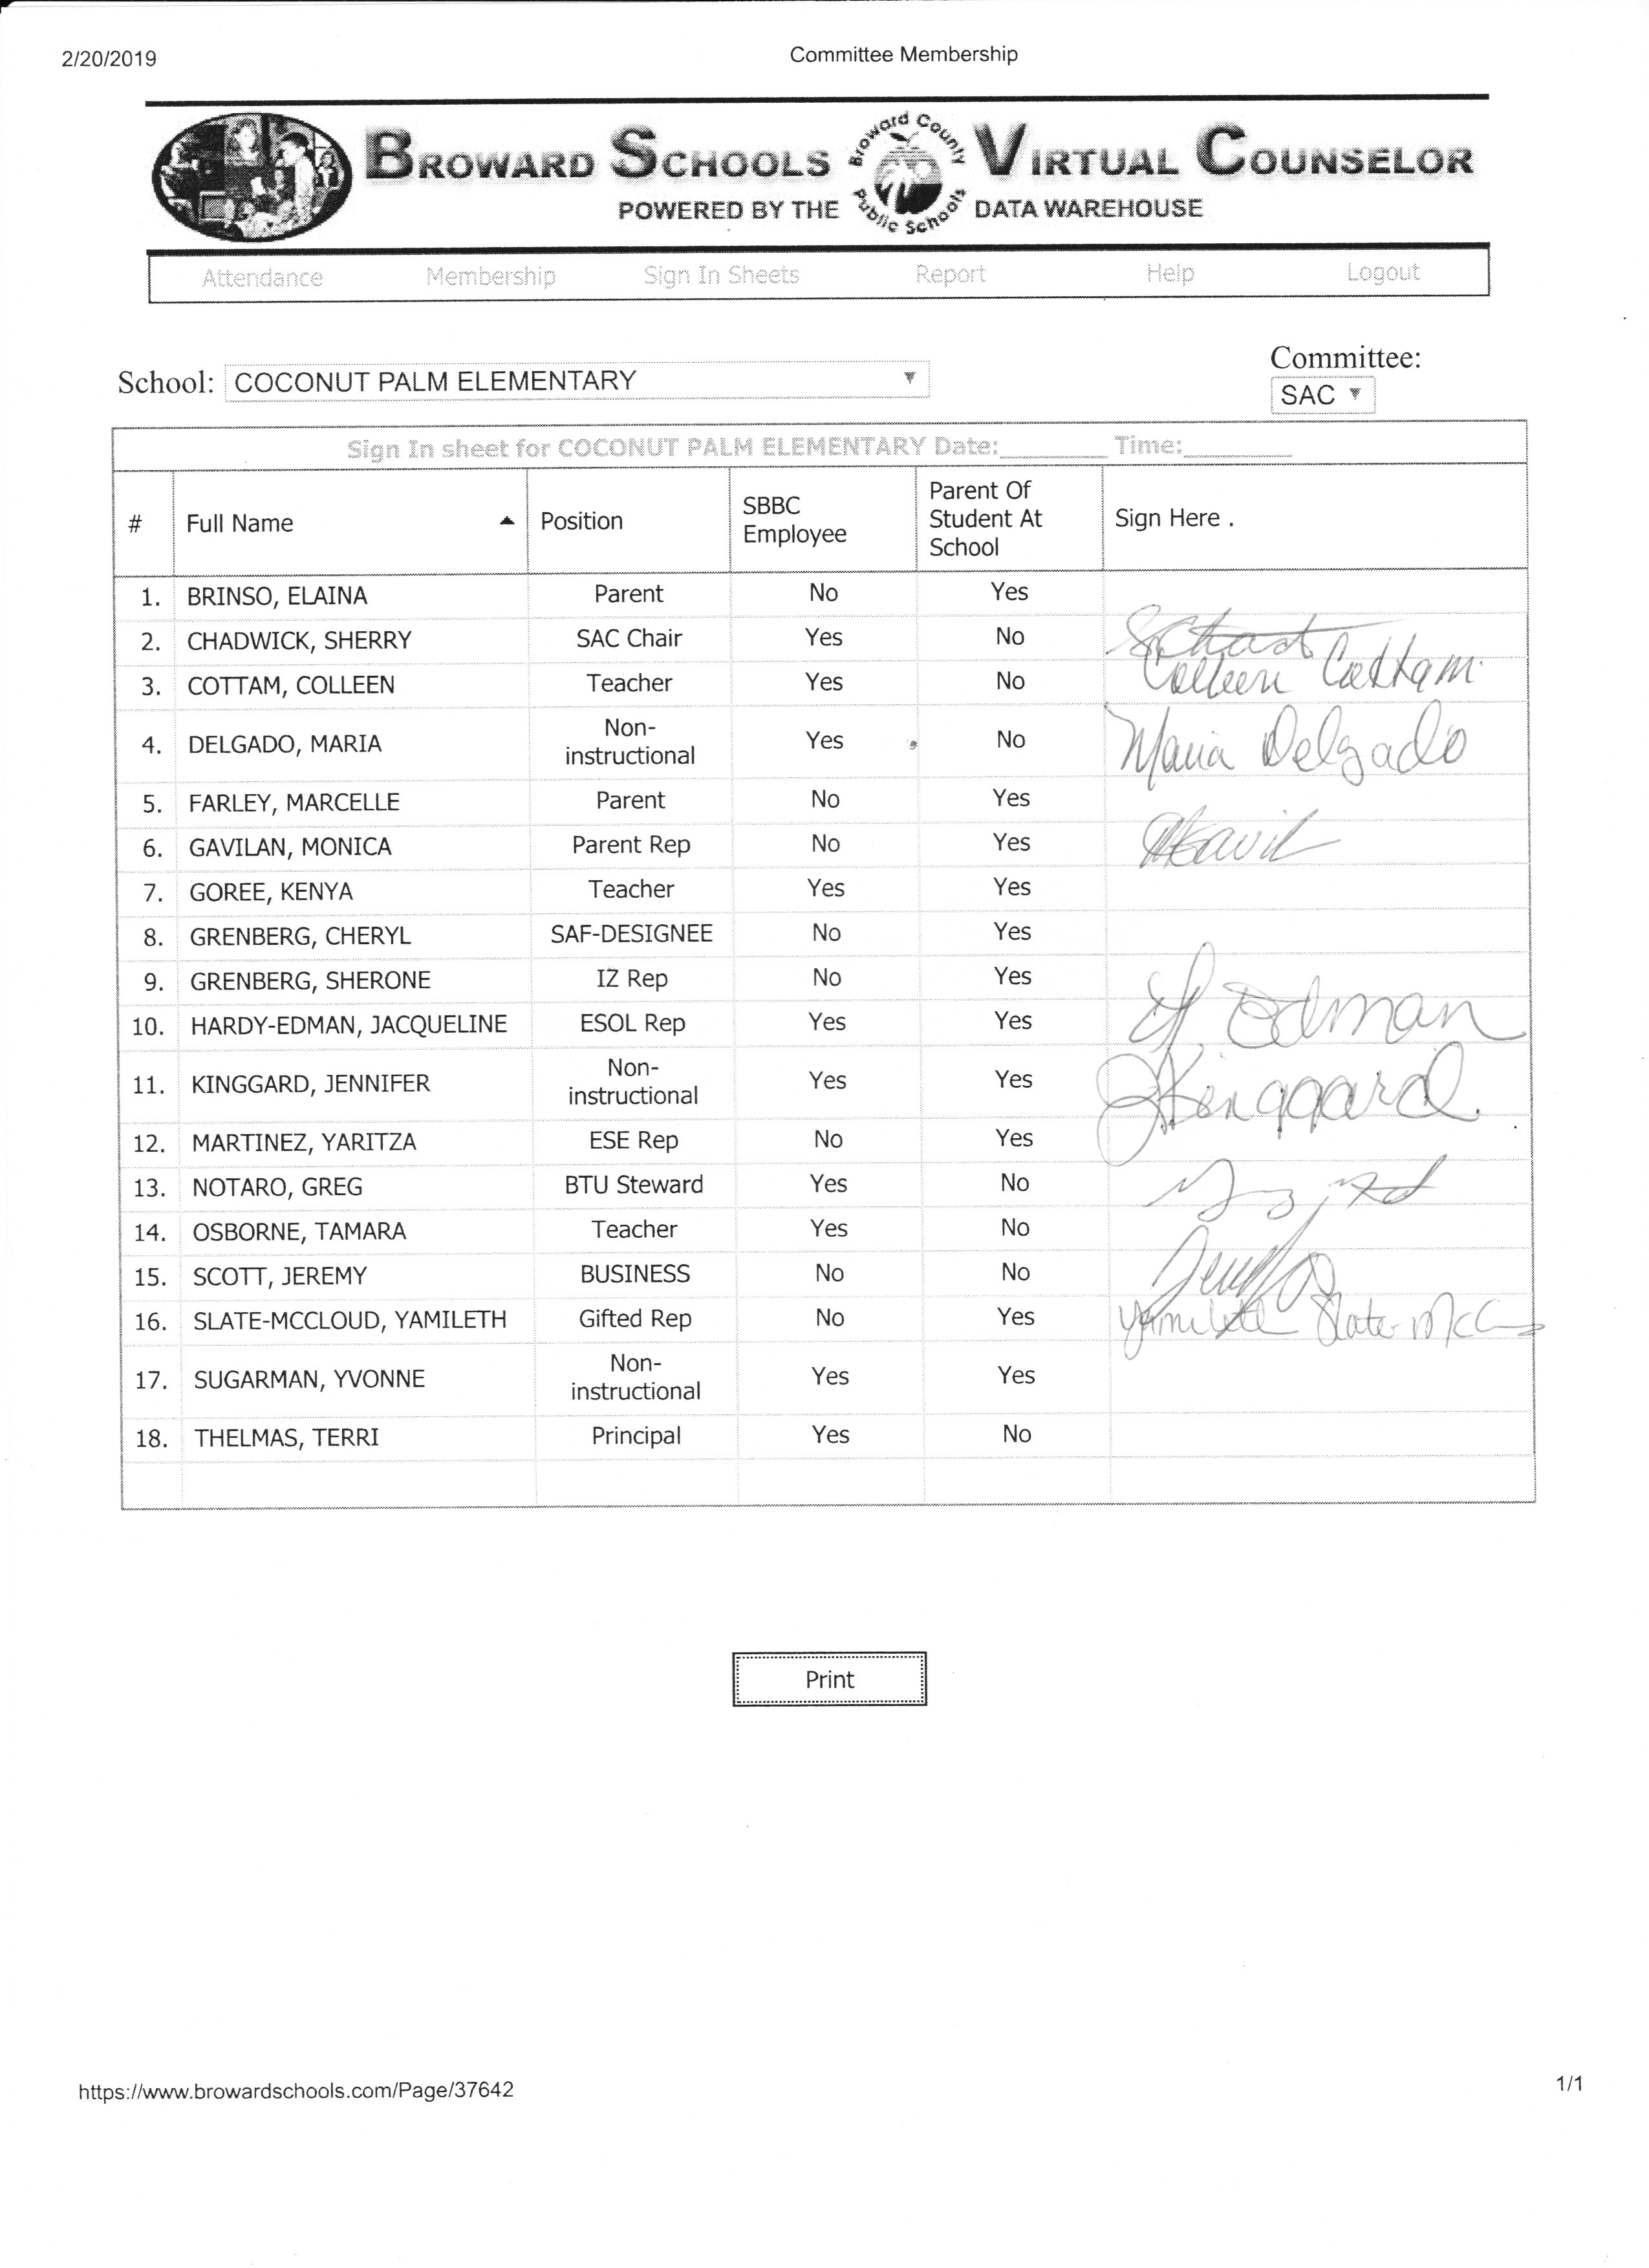 2/20/2019 Committee Membership
BROWARD SCHOOLS Broward County Public Schools VIRTUAL COUNSELOR
POWERED BY THE DATA WAREHOUSE
Attendance Membership Sign In Sheets Report Help Logout
Committee:
School: COCONUT PALM ELEMENTARY SAC
Sign In sheet for COCONUT PALM ELEMENTARY Date:________ Time:________
# Full Name Position SBBC Employee Parent Of Student At School Sign Here .
1. BRINSO, ELAINA Parent No Yes
2. CHADWICK, SHERRY SAC Chair Yes No
3. COTTAM, COLLEEN Teacher Yes No Colleen Cottam
4. DELGADO, MARIA Non-instructional Yes No Maria Delgado
5. FARLEY, MARCELLE Parent No Yes
6. GAVILAN, MONICA Parent Rep No Yes
7. GOREE, KENYA Teacher Yes Yes
8. GRENBERG, CHERYL SAF-DESIGNEE No Yes
9. GRENBERG, SHERONE IZ Rep No Yes
10. HARDY-EDMAN, JACQUELINE ESOL Rep Yes Yes Edman
11. KINGGARD, JENNIFER Non-instructional Yes Yes JKinggard
12. MARTINEZ, YARITZA ESE Rep No Yes
13. NOTARO, GREG BTU Steward Yes No
14. OSBORNE, TAMARA Teacher Yes No
15. SCOTT, JEREMY BUSINESS No No
16. SLATE-MCCLOUD, YAMILETH Gifted Rep No Yes Yamileth Slate-McC
17. SUGARMAN, YVONNE Non-instructional Yes Yes
18. THELMAS, TERRI Principal Yes No
Print
https://www.browardschools.com/Page/37642 1/1